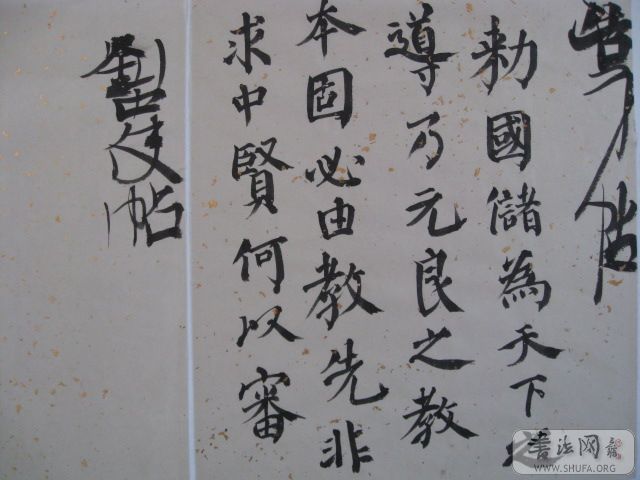 告身帖
勑國儲為天下
導乃元良之教
本固必由教先非
求中賢何以審
劉中使帖
書法网
WWW.SHUFA.ORG